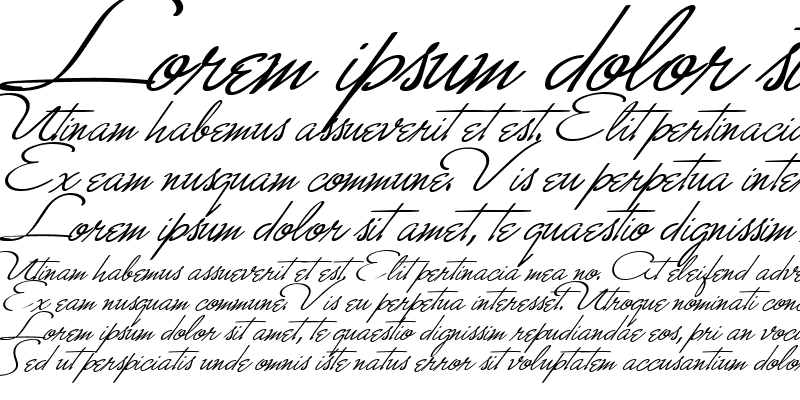 Lorem ipsum dolor si
Utinam habemus assueverit et est. Elit pertinacia
Ex eam nusquam commune. Vis eu perpetua inter
Lorem ipsum dolor sit amet, te quaestio dignissim
Utinam habemus assueverit et est. Elit pertinacia mea no. At eleifend adve
Ex eam nusquam commune. Vis eu perpetua interesset. Utroque nominati cons
Lorem ipsum dolor sit amet, te quaestio dignissim repudiandae eos, pri an voci
Sed ut perspiciatis unde omnis iste natus error sit voluptatem accusantium dolo